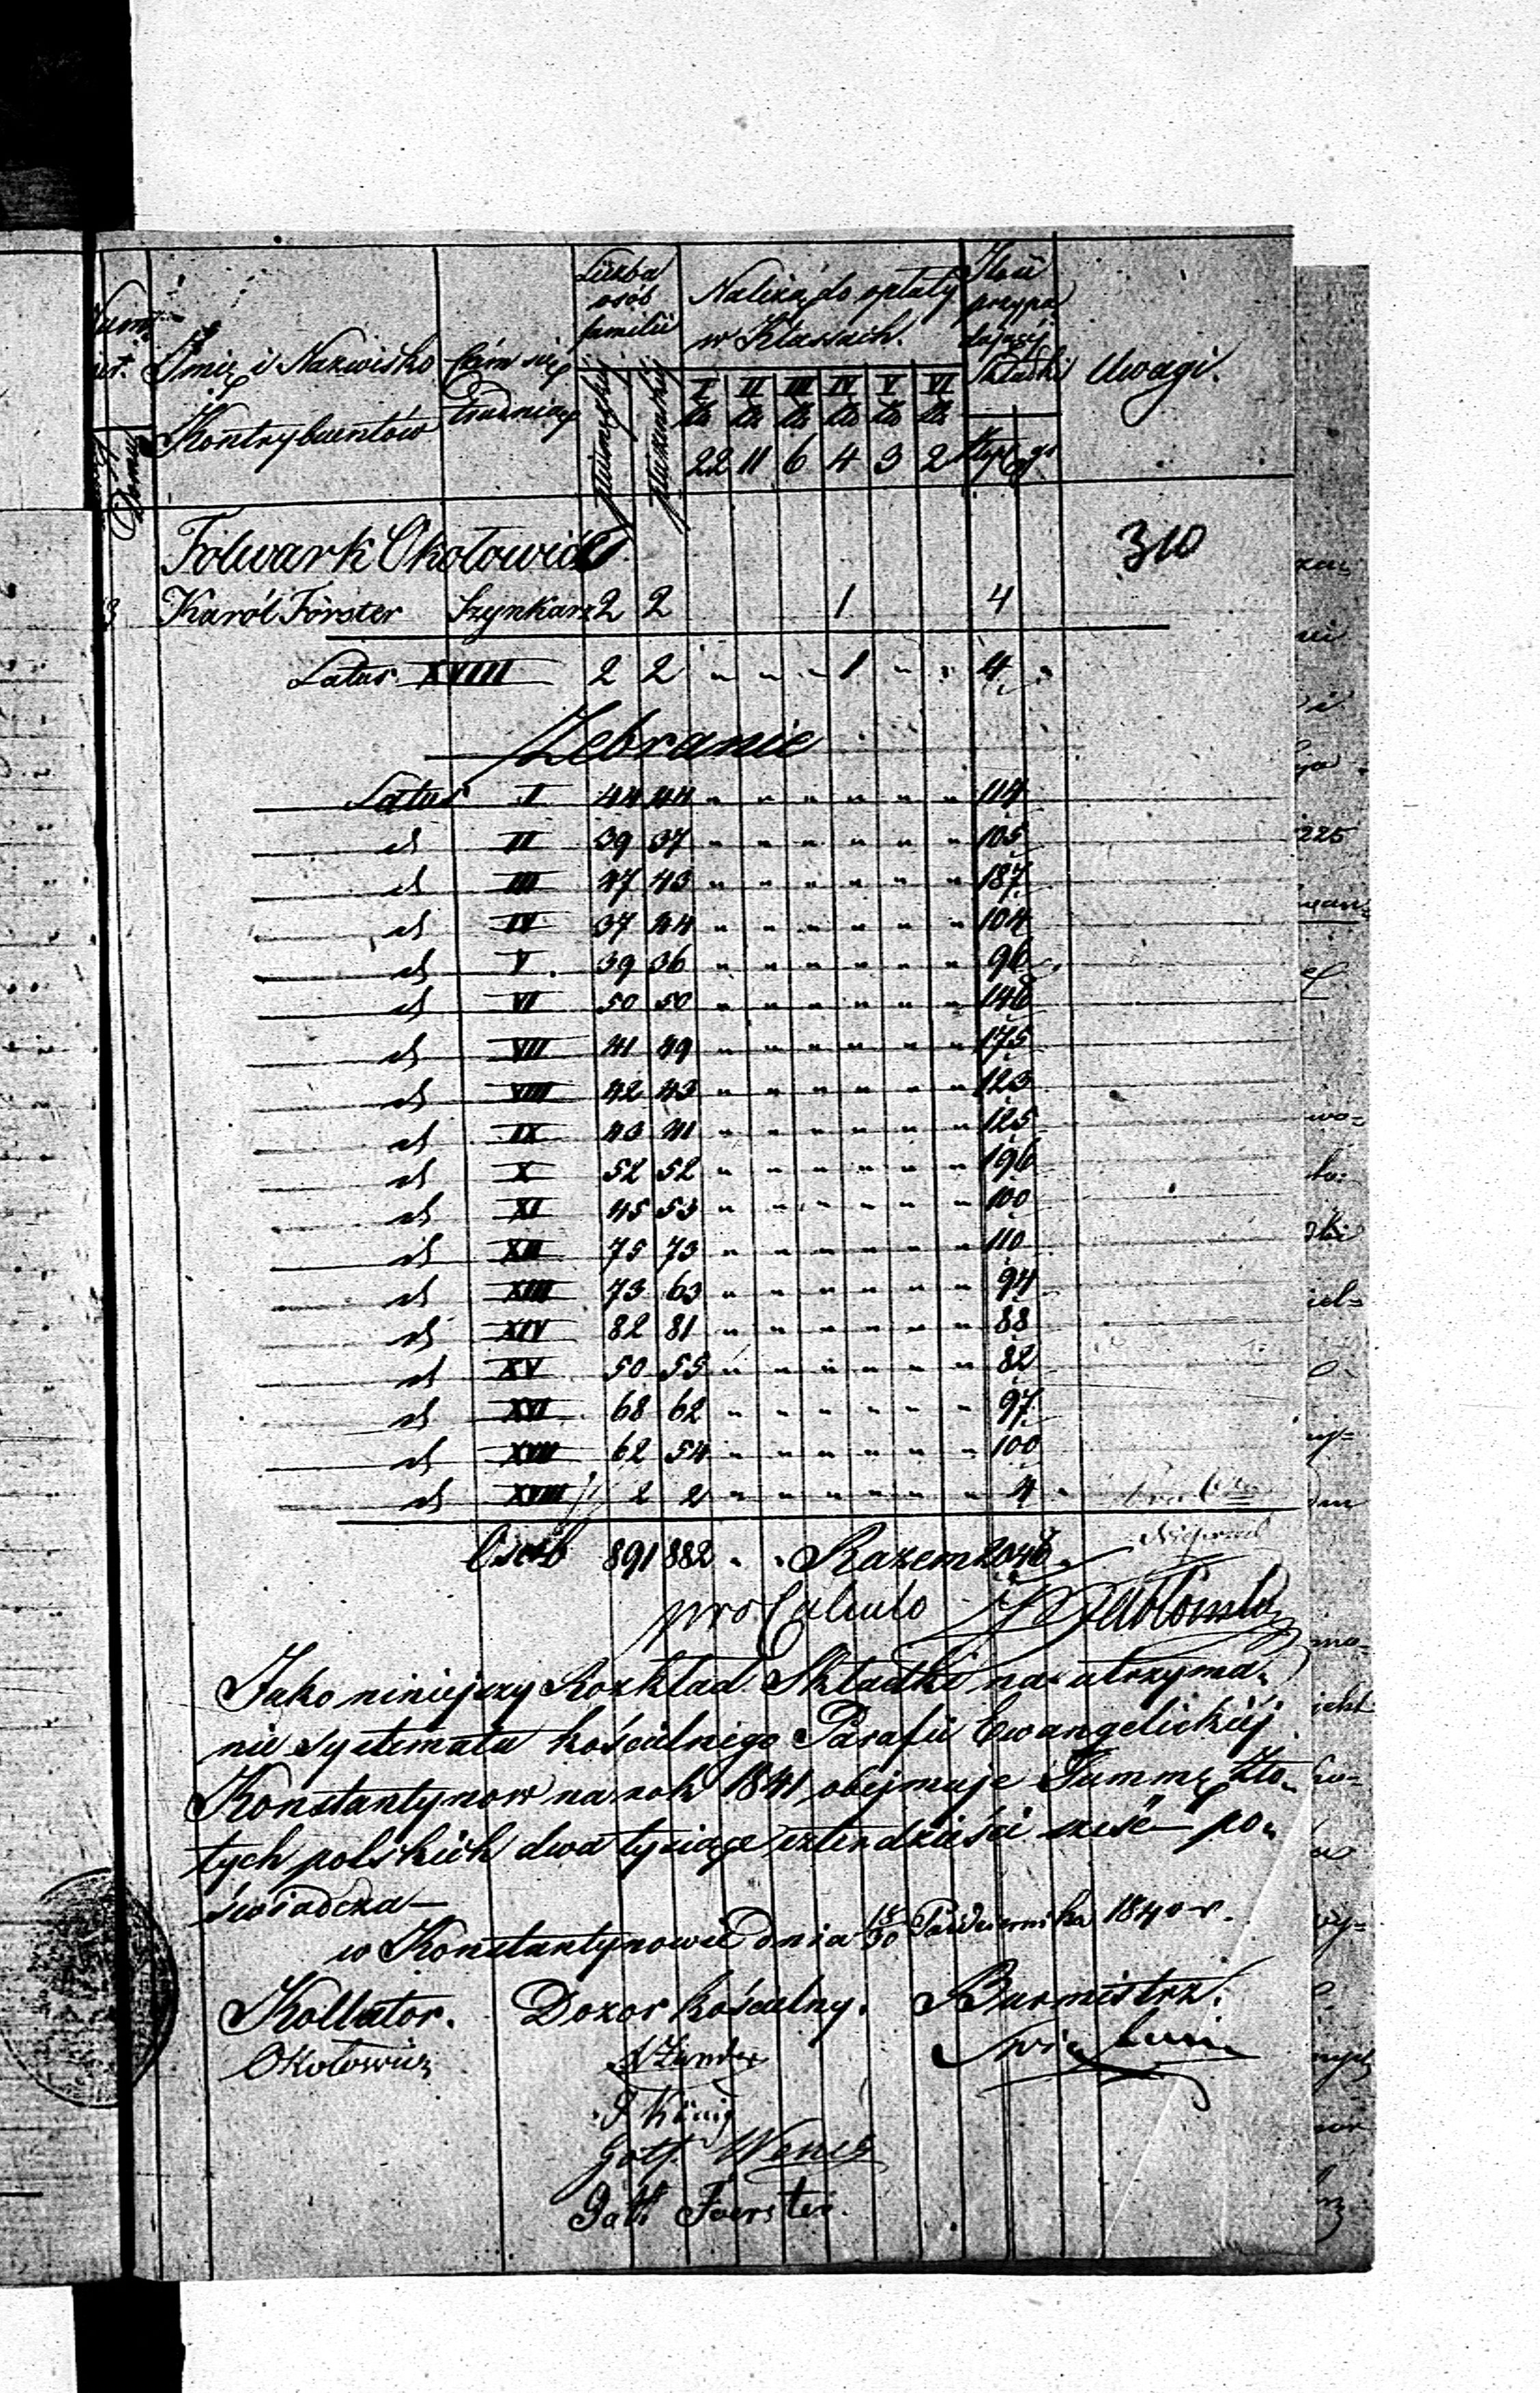 Imię i Nazwisko Kontrybuentów
Czem się trudniący
Liczba osób familii
Należą do opłaty w Klassach.
I II III IV V VI
22 11 6 4 3 2
Składki
Uwagi.
Folwark Okołowicz
310
Karól Förster Szynkarz 2 2 1 4
Latus XVIII 2 2 " " " 1 " " 4 "
Zebranie
Latus I 44 44 " " " " " " 114
d II 39 37 " " " " " " 105
d III 47 43 " " " " " " 187
d IV 37 44 " " " " " " 104
d V. 39 36 " " " " " " 96
d VI 50 50 " " " " " " 146
d VII 41 49 " " " " " " 175
d VIII 42 43 " " " " " " 123
d IX 43 41 " " " " " " 125
d X 52 52 " " " " " " 196
d XI 45 53 " " " " " " 100
d XII 75 73 " " " " " " 110
d XIII 73 63 " " " " " " 94
d XIV 82 81 " " " " " " 88
d XV 50 55 " " " " " " 82
d XVI 68 62 " " " " " " 97
d XVII 62 54 " " " " " " 100
d XVIII 2 2 " " " " " " 4 "
Osób 891 882 " " Razem 2046
pro Calculo
Jako niniejszy Rozkład Składki na utrzyma„
nie systematu kościelnego Parafii Ewangelickiéj
Konstantynow na rok 1841 obejmuje Summę zło„
tych polskich dwa tysiące czterdzieści sześć po„
świadcza—
w Konstantynowie dnia 18/30 Października 1840 r.
Kollator. Dozor kościelny. Burmistrz.
Okołowicz
König
Gottf. Wenes
Gott Foerster.